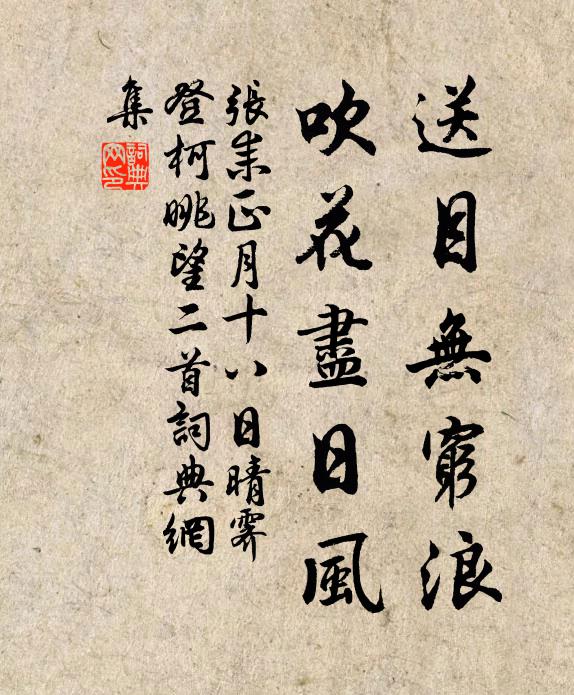 送目無窮浪
吹花盡日風
張耒正月十八日晴霽
登柯眺望二首詞典網
集
詞典
网印